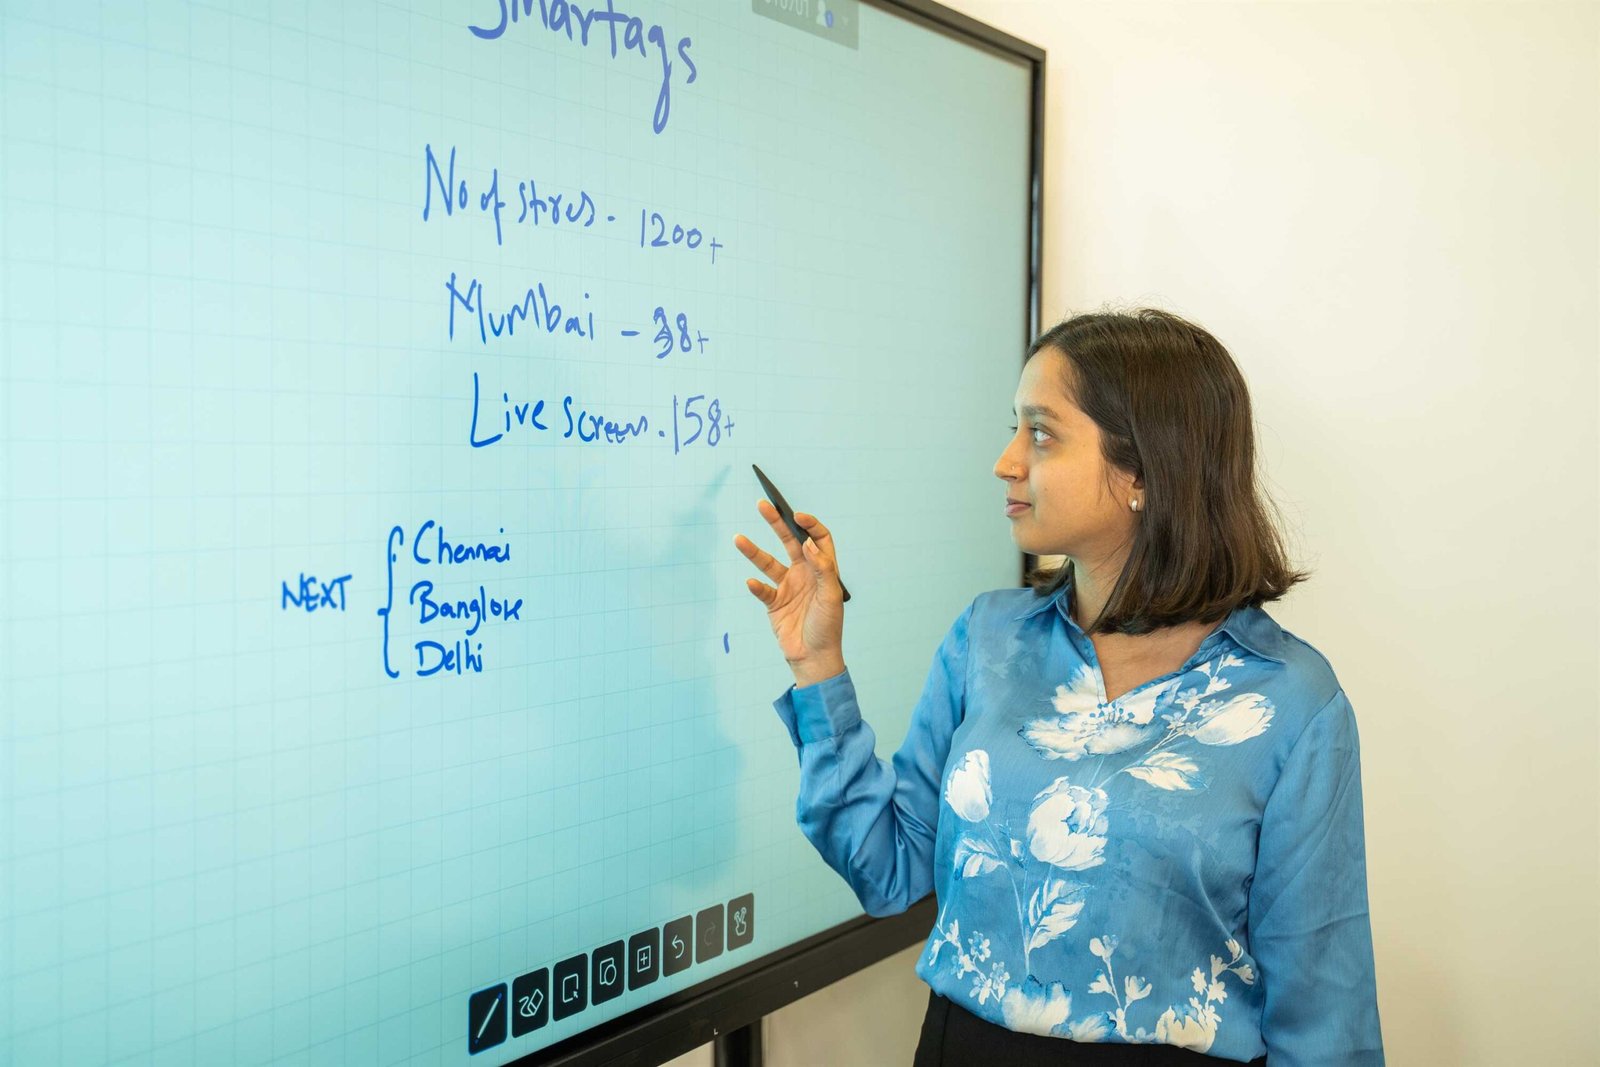 Smartags
No of stores. 1200+
Mumbai - 38+
Live screens. 158+
NEXT { Chennai
Banglore
Delhi